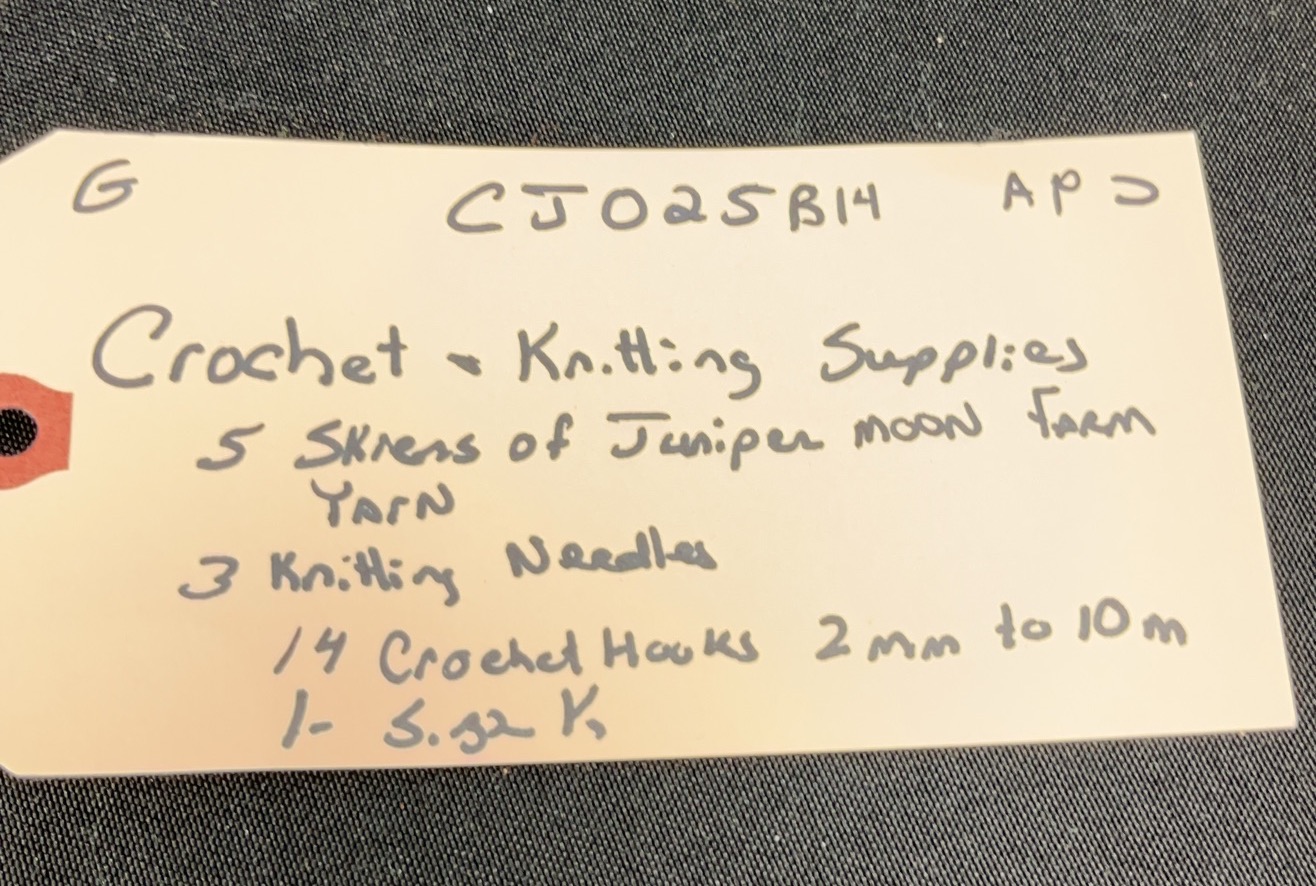 G CJ025B14 APJ
Crochet - Knitting Supplies
5 Skiens of Juniper moon Farm
Yarn
3 Knitting Needles
14 Crochet Hooks 2mm to 10m
1- Size K